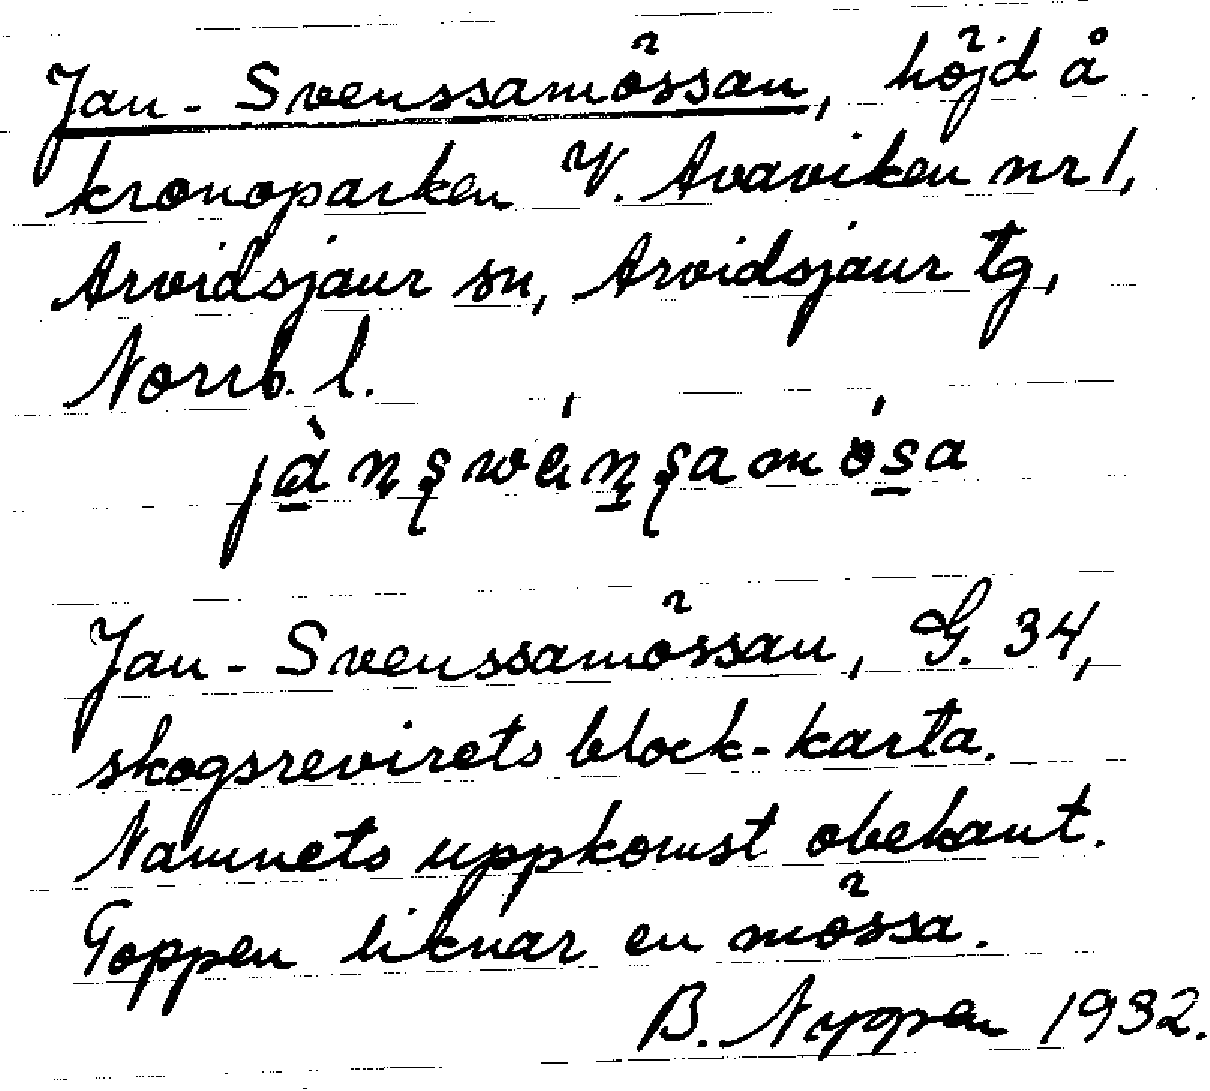 Jan-Svenssamössan, höjd å
kronoparken V. Avaviken nr 1,
Arvidsjaur sn, Arvidsjaur tg,
Norrb. l.
Jan-Svenssamössan, G. 34,
skogsrevirets block-karta.
Namnets uppkomst obekant.
Toppen liknar en mössa.
B. Nyppen 1932.